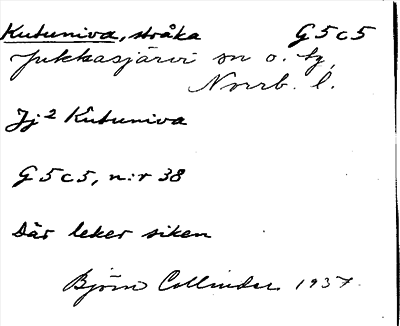 Kutuniva, stråka G 5 c 5
Jukkasjärvi sn o. tg,
Norrb. l.
Jj² Kutuniva
G 5 c 5, n:r 38
Där leker siken
Björn Collinder 1937.